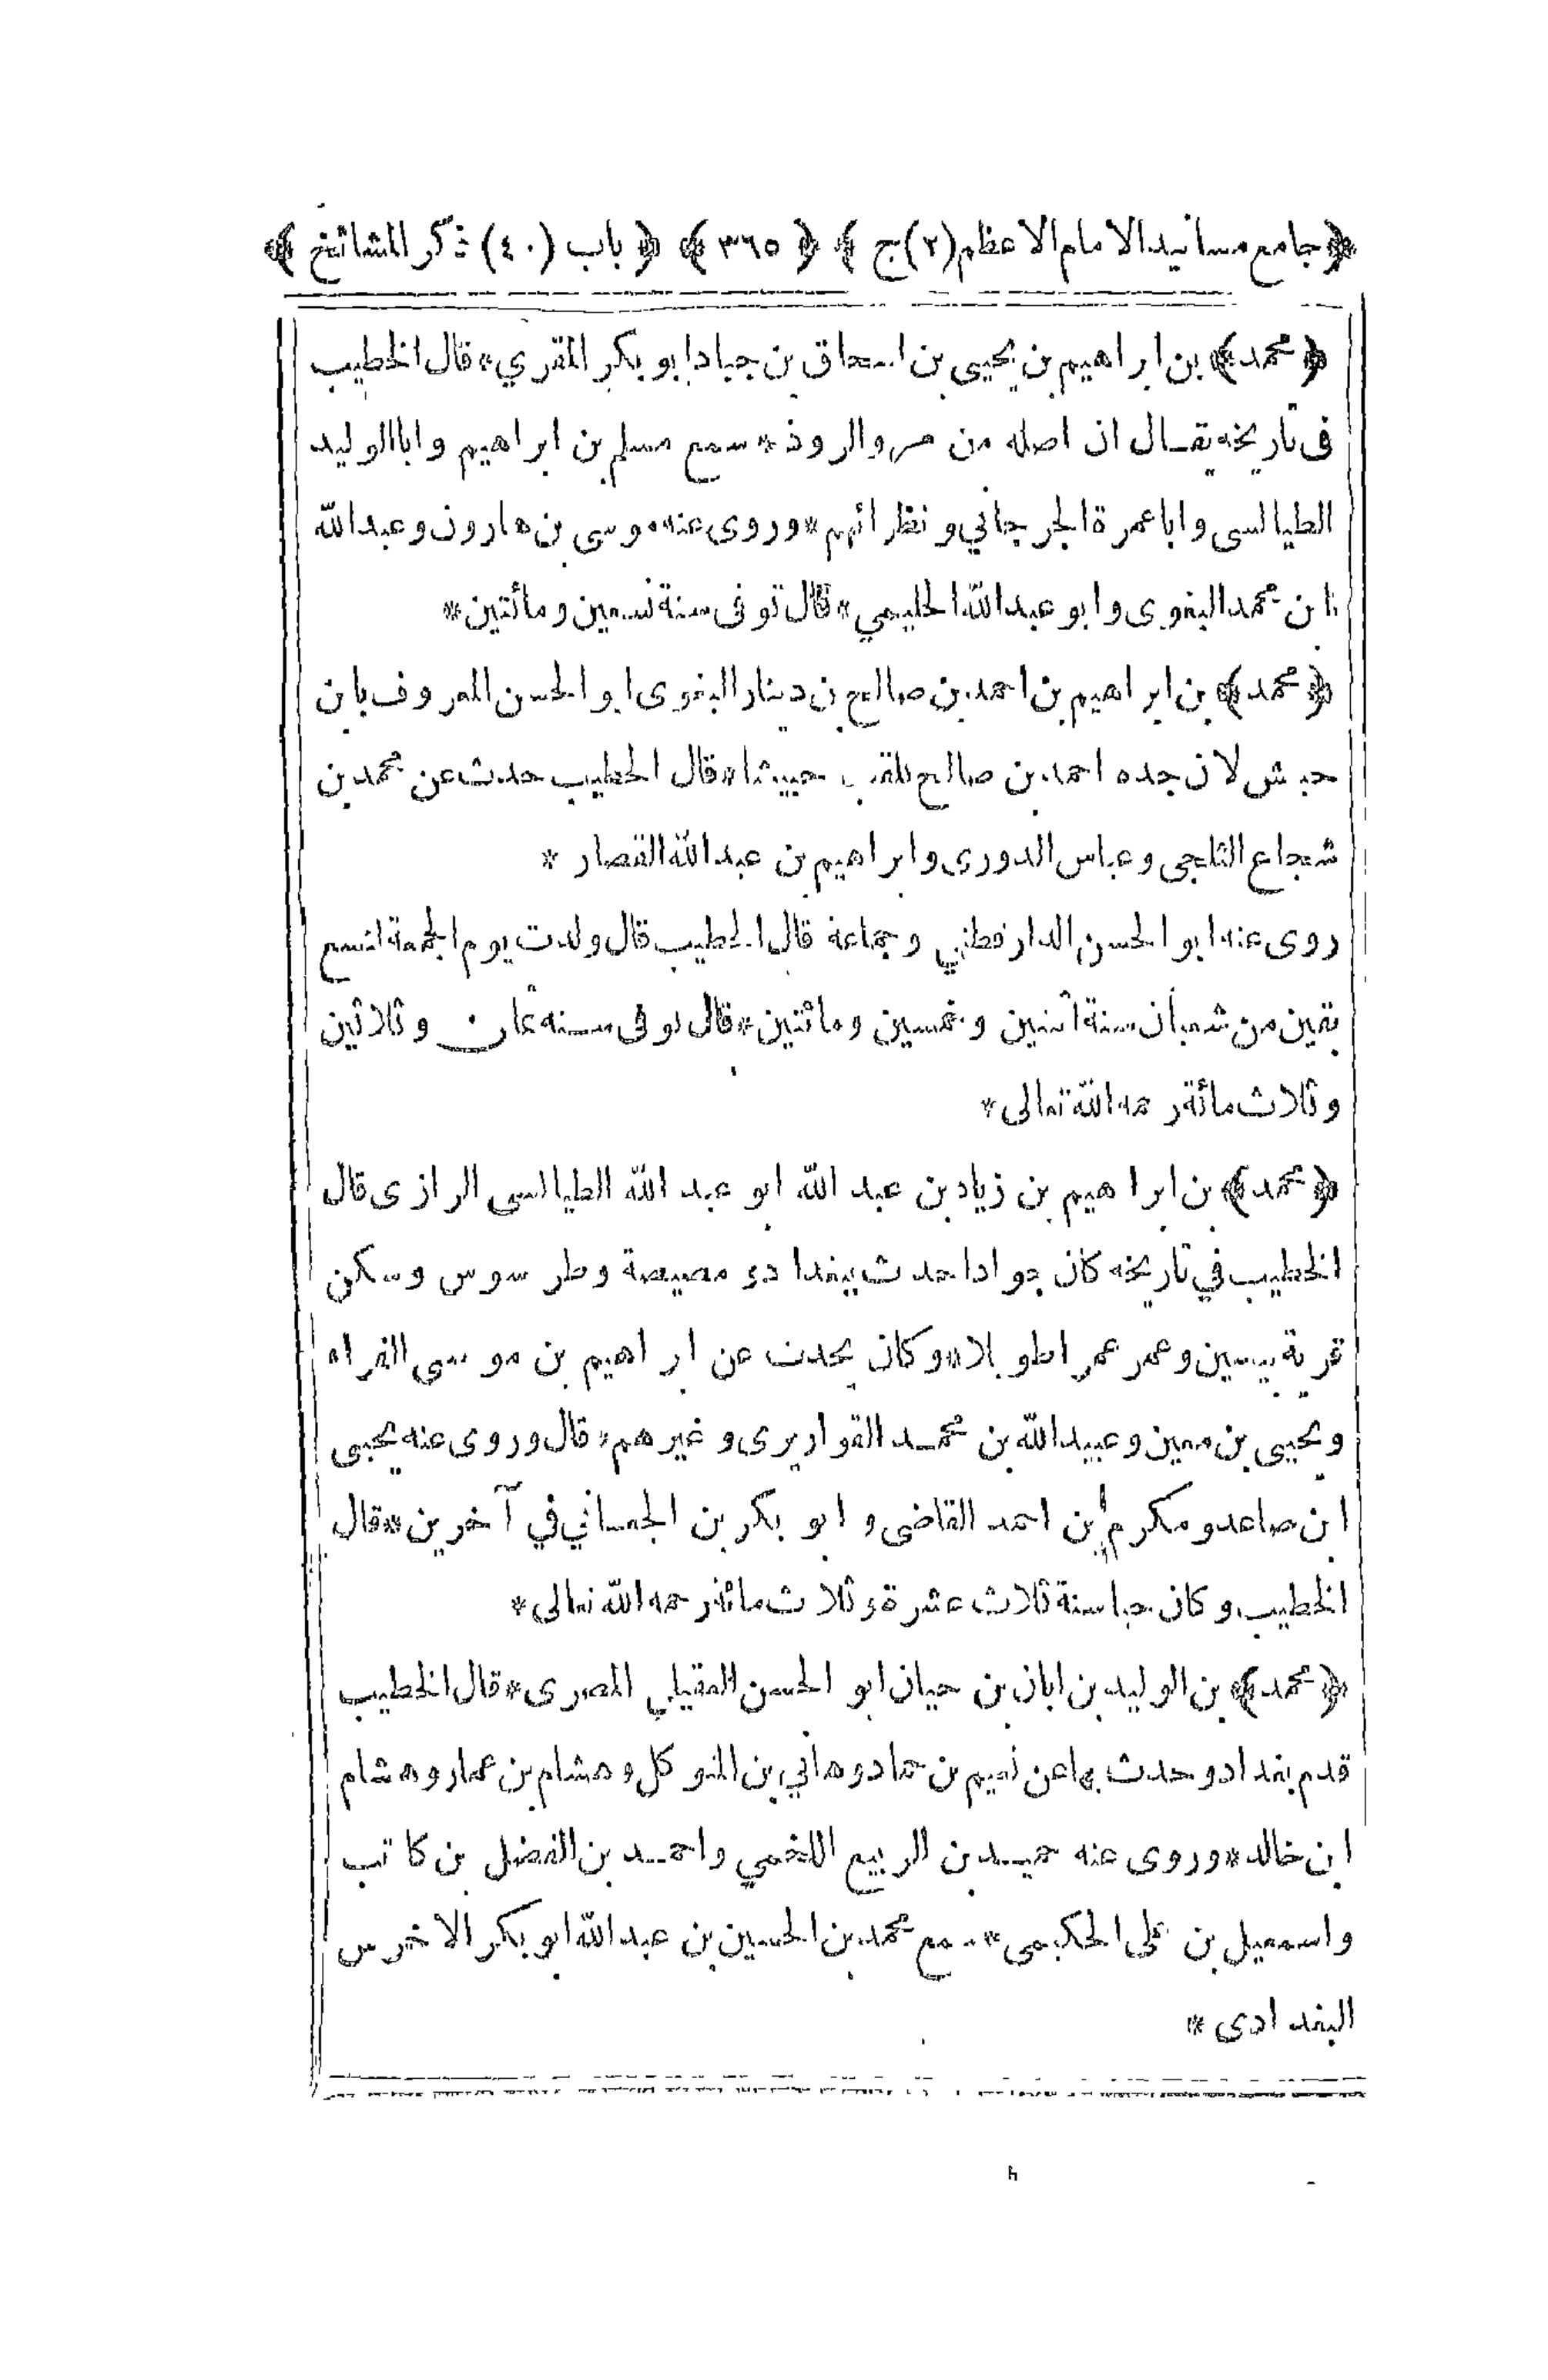 ﴿جامع مسانيد الامام الاعظم (٢) ج﴾ ﴿٣٦٥﴾ ﴿باب (٤٠) ذكر المشائخ﴾
﴿محمد﴾ بن ابراهيم بن يحيى بن اسحاق بن جياد ابو بكر المقري* قال الخطيب
فى تاريخه يقال ان اصله من مرو الروذ* سمع مسلم بن ابراهيم وابا الوليد
الطيالسى وابا عمرة الجرجاني ونظرائهم* وروى عنه موسى بن هارون وعبد الله
ابن محمد البغوى وابو عبد الله الحليمي* قال توفى سنة تسعين ومائتين*
﴿محمد﴾ بن ابراهيم بن احمد بن صالح بن دينار البغوى ابو الحسن المعروف بابن
حبيش لان جده احمد بن صالح يلقب حبيشا* قال الخطيب حدث عن محمد بن
شجاع الثلجى وعباس الدورى وابراهيم بن عبد الله القصار *
روى عنه ابو الحسن الدارقطني وجماعة قال الخطيب قال ولدت يوم الجمعة لتسع
بقين من شعبان سنة اثنين وخمسين ومائتين* قال توفى سنة ثمان وثلاثين
وثلاث مائة رحمه الله تعالى*
﴿محمد﴾ بن ابراهيم بن زياد بن عبد الله ابو عبد الله الطيالسى الرازى قال
الخطيب في تاريخه كان جوادا حدث ببغداد و مصيصة وطرسوس وسكن
قرية وعمر عمرا طويلا* وكان يحدث عن ابراهيم بن موسى الفراء
ويحيى بن معين وعبيد الله بن محمد القواريرى وغيرهم* قال وروى عنه يحيى
ابن صاعد ومكرم بن احمد القاضى وابو بكر بن في آخرين* قال
الخطيب وكان حيا سنة ثلاث عشرة وثلاث مائة رحمه الله تعالى*
﴿محمد﴾ بن الوليد بن ابان بن حيان ابو الحسن العقيلي المصرى* قال الخطيب
قدم بغداد وحدث بها عن نعيم بن حماد وهاني بن المتوكل وهشام بن عمار وهشام
ابن خالد* وروى عنه حميد بن الربيع اللخمي واحمد بن الفضل بن كاتب
واسمعيل بن على الحكيمى* سمع محمد بن الحسين بن عبد الله ابو بكر الاخرس
البغدادى *